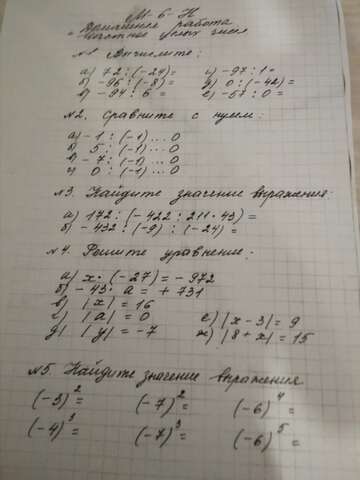 М-6-Н
Домашняя работа
Частное целых чисел
№1 Вычислите:
а) 72 : (-24) = г) -97 : 1 =
б) -96 : (-8) = д) 0 : (-42) =
в) -94 : 6 = е) -57 : 0 =
№2. Сравните с нулем:
а) -1 : (-1) ... 0
б) 5 : (-1) ... 0
в) -7 : (-1) ... 0
г) 0 : (-1) ... 0
№3. Найдите значение выражения:
а) 172 : (-422 : 211 · 43) =
б) -432 : (-9) : (-24) =
№4. Решите уравнение:
а) x · (-27) = -972
б) -43 · a = + 731
в) |x| = 16
г) |a| = 0 е) |x - 3| = 9
д) |y| = -7 ж) |8 + x| = 15
№5. Найдите значение выражения
(-3)² = (-7)² = (-6)⁴ =
(-4)³ = (-7)³ = (-6)⁵ =